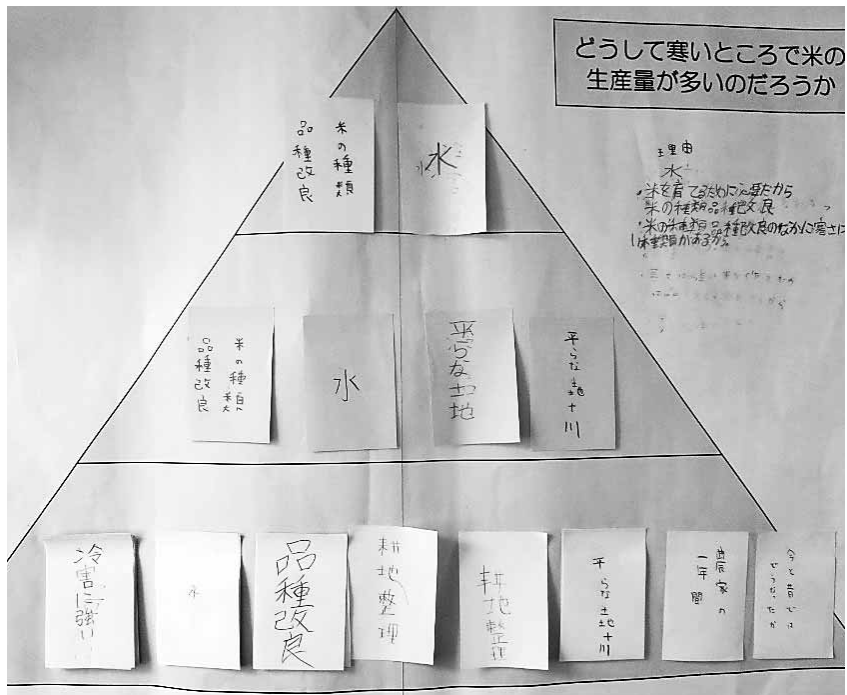 どうして寒いところで米の
生産量が多いのだろうか
理由
水
・米を育てるために必要だから
米の種類品種改良
・米の種類品種改良のなかに寒さに
種類があるから
米の種類
品種改良
水
米の種類
品種改良
水
平らな土地
平らな土地+川
冷害に強い
水
品種改良
耕地整理
耕地整理
平らな土地+川
農家の
一年間
今と昔では
どうなったか